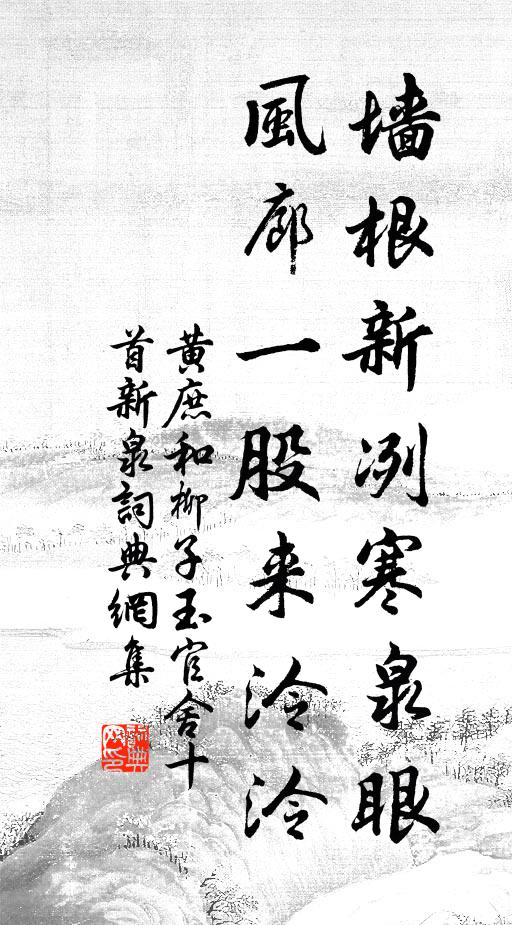 墙根新冽寒泉眼
風廊一股来泠泠
黄庶和柳子玉官舍十
首新泉詞典網集